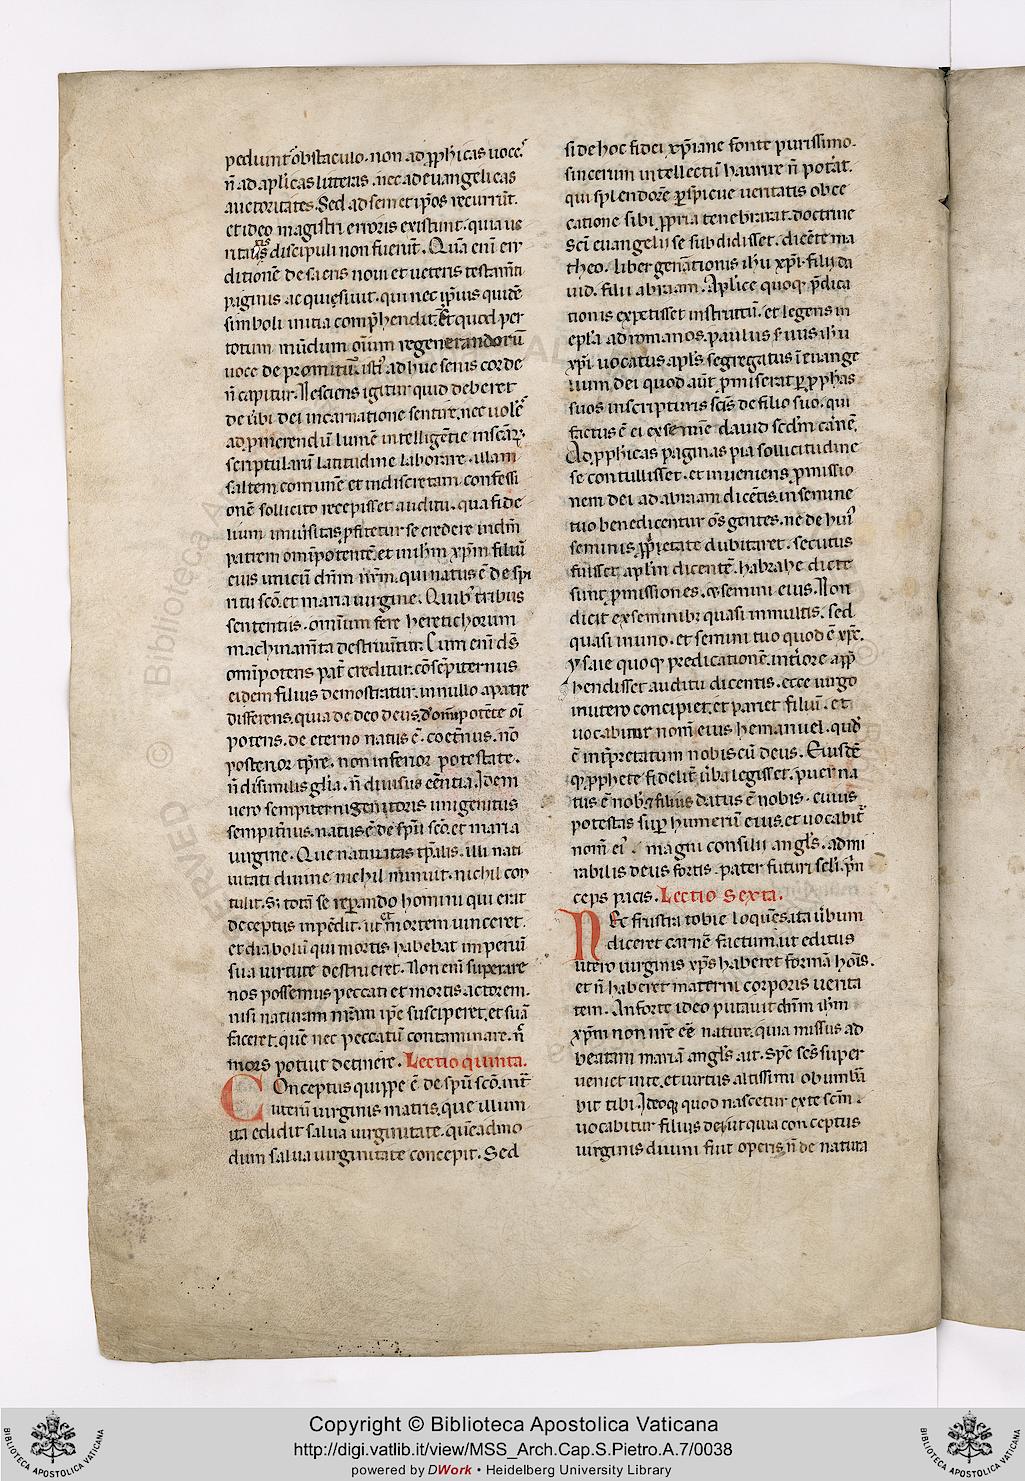 pediunt̾ obstaculo. non ad ꝓph̾icas uoce᷒.
n̄ ad apl̾icas litteras. nec ad euangelicas
auctoritates. Sed ad semet ip̄os recurrūt.
et ideo magistri erroris existunt. quia ue
ritatis discipuli non fuerūt. Quā eni᷒ eru
ditionē de sacris noui et ueteris testam̄ti
paginis acquisiuit. qui nec ip̄ius quidē
simboli initia comp̄hendit. Et quod per
totum mūdum om̄ium regenerandorū
uoce depromitur. isti᷒ adhuc senis corde
n̄ capitur. Nesciens igitur quid deberet
de ūbi dei incarnatione sentire. nec uolēs
ad ꝓmerendū lumē intelligētie in scāꝝ
scripturarū latitudine laborare. illam
saltem comunē et indiscretam confessi
onē sollicito recepisset auditu. qua fide
lium uniūsitas ꝓfitetur se credere in dm̄
patrem om̄ipotentē. et in ihm̄ xp̄m filiū
eius unicū dn̄m nr̄m. qui natus ē de spi
ritu sc̄o. et maria uirgine. Quib᷒ tribus
sententiis. omnium fere hereticorum
machinam̄ta destruūtur. Cum eni᷒ ds̄
om̄ipotens pat̄ creditur. cōsēpiternus
eidem filius demostratur. in nullo a patre
differens. quia de deo deus. d᷒ om̄ipotēte om̄
potens. de eterno natus ē. coet̄nus. nō
posterior tp̄re. non inferior potestate.
n̄ dis̄imilis gl̄ia. n̄ diuisus eēntia. Idem
uero sempiterni genitoris unigenitus
sempit̄nus. natus ē de sp̄u sc̄o. et maria
uirgine. Que natiuitas tp̄alis. illi nati
uitati diuine nichil minuit. nichil con
tulit. S; totā se reparando homini qui erat
deceptus impēdit. ut et mortem uinceret.
et diabolū qui mortis habebat imperiū
sua uirtute destrueret. Non eni᷒ superare
nos possemus peccati et mortis actorem.
nisi naturam nr̄am ip̄e susciperet. et suā
faceret. quē nec peccatū contaminare. n̄
mors potuit detinere. Lectio quinta.
Conceptus quippe ē de sp̄u sc̄o. int̄
uterū uirginis matris. que illum
ita edidit salua uirginitate. quēadmo
dum salua uirginitate concepit. Sed
si de hoc fidei xp̄iane fonte purissimo.
sincerum intellectū haurire n̄ pot̄at.
qui splendorē ꝑspicue ueritatis obce
catione sibi ꝓpria tenebrarat. doctrine
sc̄i euangelii se subdidisset. dicēte ma
theo. liber gen̄ationis ih̄u xp̄i. filii da
uid. filii abraam. Apl̾ice quoq᷒ p̄dica
tionis expetisset instructū. et legens in
epl̄a ad romanos. paulus ēuus ih̄u
xp̄i uocatus apl̄s segregatus ī euange
lium dei quod aūt ꝓmiserat ꝑ ꝓphas
suos in scripturis sc̄is de filio suo. qui
factus ē ei ex semine dauid sed̄m carnē.
Ad ꝓphicas paginas pia sollicitudine
se contullisset. et inueniens ꝓmissio
nem dei ad abraam dicētis. in semine
tuo benedicentur om̄s gentes. ne de hui᷒
seminis ꝓprietate dubitaret. secutus
fuisset apl̄m dicentē. habrahe dicte
sunt ꝓmissiones. et semini eius. Non
dicit et seminib; quasi in multis. sed
quasi in uno. et semini tuo quod ē xp̄c.
ysaie quoq᷒ predicationē. int̄iore app̄
hendisset auditu dicentis. ecce uirgo
in utero concipiet. et pariet filiū. et
uocabitur nom̄ eius hemanuel. quod
ē int̄pretatum nobiscū deus. Eiusdē
q᷒ ꝓphete fidelit̄ ūba legisset. puer na
tus ē nob᷒ et filius datus ē nobis. cuius
potestas sup̄ humerū eius. et uocabit̄
nom̄ ei᷒. magni consilii angl̄s. admi
rabilis deus fortis. pater futuri sēli. p̄n
ceps pacis. Lectio Sexta.
Nec frustra tobie loquens. ita ūbum
diceret carnē factum. ut editus
utero uirginis xp̄s haberet formā hōis.
et n̄ haberet materni corporis uerita
tem. An forte ideo putauit dn̄m ihm̄
xp̄m non nr̄e eē nature. quia missus ad
beatam mariā angl̄s. ait. Sp̄c sc̄s super
ueniet in te. et uirtus altissimi obumbra
bit tibi. Ideoq᷒ quod nascetur ex te sc̄m.
uocabitur filius dei. ut quia conceptus
uirginis diuini fuit operis. n̄ de natura
Copyright © Biblioteca Apostolica Vaticana
http://digi.vatlib.it/view/MSS_Arch.Cap.S.Pietro.A.7/0038
powered by DWork • Heidelberg University Library
BIBLIOTECA APOSTOLICA VATICANA
BIBLIOTECA APOSTOLICA VATICANA